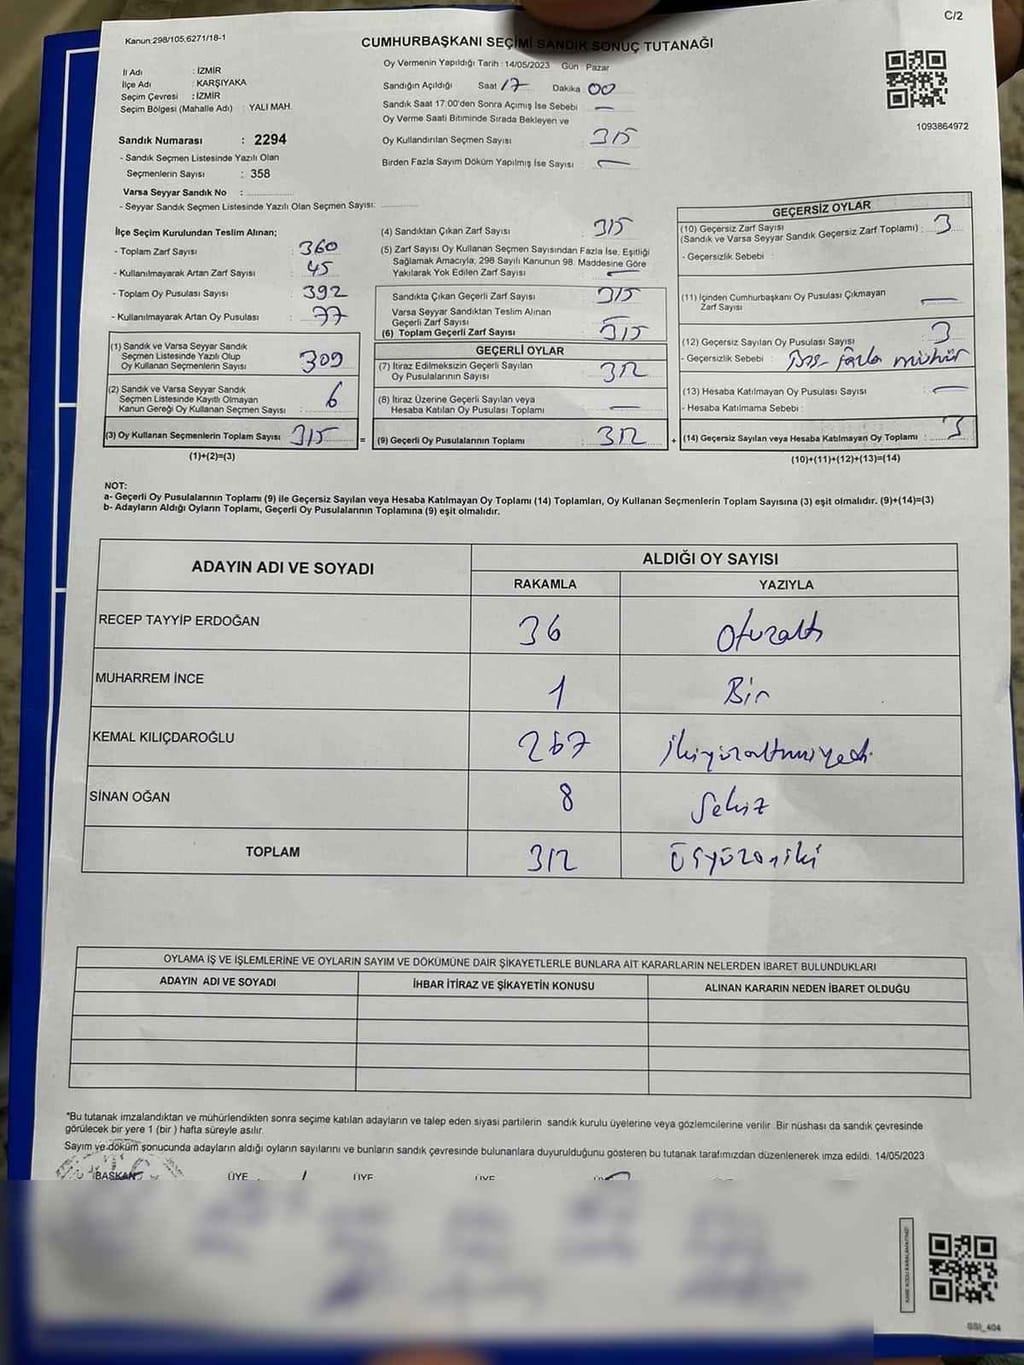 C/2
Kanun:298/105,6271/18-1
CUMHURBAŞKANI SEÇİMİ SANDIK SONUÇ TUTANAĞI
İl Adı : İZMİR
İlçe Adı : KARŞIYAKA
Seçim Çevresi : İZMİR
Seçim Bölgesi (Mahalle Adı) : YALI MAH.
Sandık Numarası : 2294
- Sandık Seçmen Listesinde Yazılı Olan
Seçmenlerin Sayısı : 358
Varsa Seyyar Sandık No :
- Seyyar Sandık Seçmen Listesinde Yazılı Olan Seçmen Sayısı:
Oy Vermenin Yapıldığı Tarih : 14/05/2023 Gün : Pazar
Sandığın Açıldığı Saat 17 Dakika 00
Sandık Saat 17:00'den Sonra Açımış İse Sebebi —
Oy Verme Saati Bitiminde Sırada Bekleyen ve
Oy Kullandırılan Seçmen Sayısı 315
Birden Fazla Sayım Döküm Yapılmış İse Sayısı —
1093864972
İlçe Seçim Kurulundan Teslim Alınan;
- Toplam Zarf Sayısı : 360
- Kullanılmayarak Artan Zarf Sayısı : 45
- Toplam Oy Pusulası Sayısı : 392
- Kullanılmayarak Artan Oy Pusulası : 77
(1) Sandık ve Varsa Seyyar Sandık
Seçmen Listesinde Yazılı Olup
Oy Kullanan Seçmenlerin Sayısı : 309
(2) Sandık ve Varsa Seyyar Sandık
Seçmen Listesinde Kayıtlı Olmayan
Kanun Gereği Oy Kullanan Seçmen Sayısı : 6
(3) Oy Kullanan Seçmenlerin Toplam Sayısı : 315 =
(1)+(2)=(3)
(4) Sandıktan Çıkan Zarf Sayısı 315
(5) Zarf Sayısı Oy Kullanan Seçmen Sayısından Fazla İse, Eşitliği
Sağlamak Amacıyla, 298 Sayılı Kanunun 98. Maddesine Göre
Yakılarak Yok Edilen Zarf Sayısı —
Sandıkta Çıkan Geçerli Zarf Sayısı 315
Varsa Seyyar Sandıktan Teslim Alınan
Geçerli Zarf Sayısı
(6) Toplam Geçerli Zarf Sayısı 315
GEÇERLİ OYLAR
(7) İtiraz Edilmeksizin Geçerli Sayılan
Oy Pusulalarının Sayısı 312
(8) İtiraz Üzerine Geçerli Sayılan veya
Hesaba Katılan Oy Pusulası Toplamı —
(9) Geçerli Oy Pusulalarının Toplamı 312 +
GEÇERSİZ OYLAR
(10) Geçersiz Zarf Sayısı
(Sandık ve Varsa Seyyar Sandık Geçersiz Zarf Toplamı) : 3
- Geçersizlik Sebebi :
(11) İçinden Cumhurbaşkanı Oy Pusulası Çıkmayan
Zarf Sayısı —
(12) Geçersiz Sayılan Oy Pusulası Sayısı : 3
- Geçersizlik Sebebi : fazla mühür
(13) Hesaba Katılmayan Oy Pusulası Sayısı : —
- Hesaba Katılmama Sebebi :
(14) Geçersiz Sayılan veya Hesaba Katılmayan Oy Toplamı : 3
(10)+(11)+(12)+(13)=(14)
NOT:
a- Geçerli Oy Pusulalarının Toplamı (9) ile Geçersiz Sayılan veya Hesaba Katılmayan Oy Toplamı (14) Toplamları, Oy Kullanan Seçmenlerin Toplam Sayısına (3) eşit olmalıdır. (9)+(14)=(3)
b- Adayların Aldığı Oyların Toplamı, Geçerli Oy Pusulalarının Toplamına (9) eşit olmalıdır.
ADAYIN ADI VE SOYADI
ALDIĞI OY SAYISI
RAKAMLA YAZIYLA
RECEP TAYYİP ERDOĞAN 36 Otuzaltı
MUHARREM İNCE 1 Bir
KEMAL KILIÇDAROĞLU 267 ikiyüzaltmışyedi
SİNAN OĞAN 8 Sekiz
TOPLAM 312 Üçyüzoniki
OYLAMA İŞ VE İŞLEMLERİNE VE OYLARIN SAYIM VE DÖKÜMÜNE DAİR ŞİKAYETLERLE BUNLARA AİT KARARLARIN NELERDEN İBARET BULUNDUKLARI
ADAYIN ADI VE SOYADI İHBAR İTİRAZ VE ŞİKAYETİN KONUSU ALINAN KARARIN NEDEN İBARET OLDUĞU
*Bu tutanak imzalandıktan ve mühürlendikten sonra seçime katılan adayların ve talep eden siyasi partilerin sandık kurulu üyelerine veya gözlemcilerine verilir. Bir nüshası da sandık çevresinde
görülecek bir yere 1 (bir ) hafta süreyle asılır.
Sayım ve döküm sonucunda adayların aldığı oyların sayılarını ve bunların sandık çevresinde bulunanlara duyurulduğunu gösteren bu tutanak tarafımızdan düzenlenerek imza edildi. 14/05/2023
BAŞKAN ÜYE ÜYE ÜYE